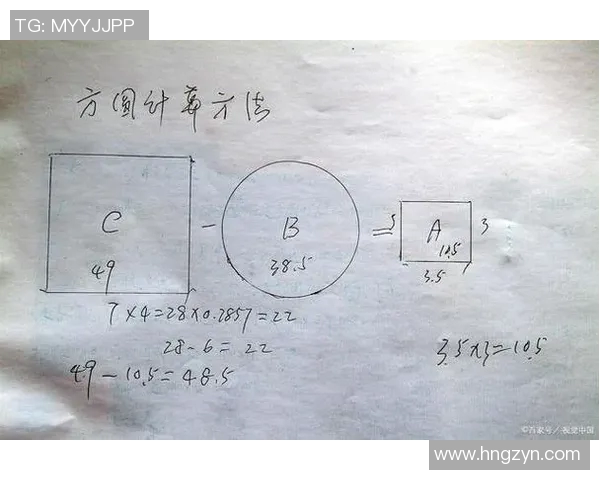 TG: MYYJJPP
方圆计算方法
C - B = 5 A 3
49 38.5 10.5
3.5
7×4=28×0.7857=22
28-6=22
3.5×3=10.5
49-10.5=48.5
©百家号/视觉中国
www.hngzyn.com